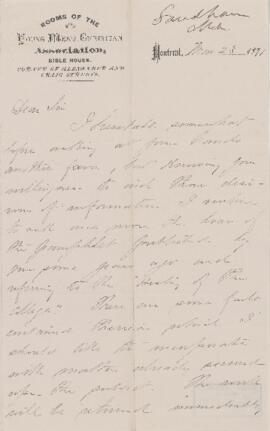 Sandham
ROOMS OF THE
Young Men's Christian
Association,
BIBLE HOUSE,
CORNER OF ALEXANDER AND
CRAIG STREETS.
Montreal, 1871
Dear Sir
I hesitate somewhat
before asking at your hands
another favor, but knowing your
willingness to aid those desi-
rous of information I venture
to ask once more the loan of
the pamphlet published by
you some years ago and
referring to the history of the
College. There are some facts
contained therein which I
should like to incorporate
with matter already secured
upon the subject. The work
will be returned immediately